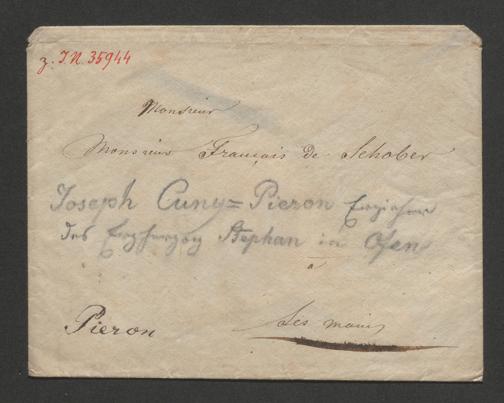 z. I.N. 35944
Monsieur
Monsieur François de Schober
Joseph Cuny=Pieron Erzieher
des Erzherzog Stephan in Ofen
à
Ses mains
Pieron